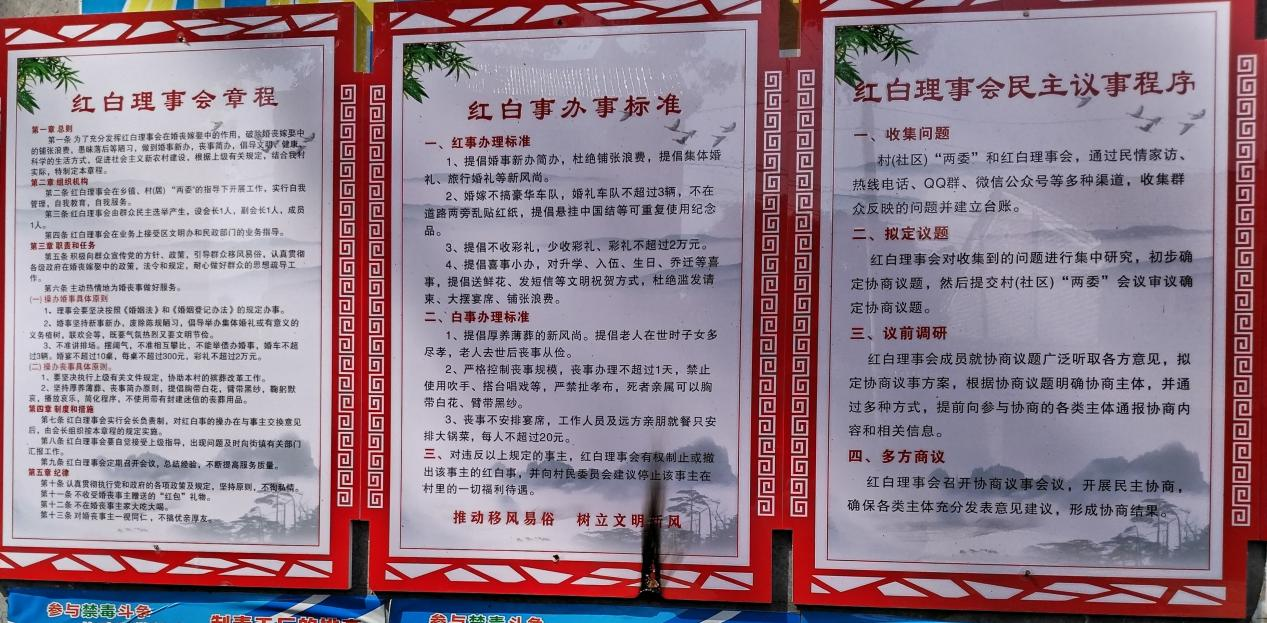 红白理事会章程
第一章 总则
第一条 为了充分发挥红白理事会在婚丧嫁娶中的作用，破除婚丧嫁娶中
的铺张浪费，愚昧落后等陋习，做到婚事新办，丧事简办，倡导文明、健康、
科学的生活方式，促进社会主义新农村建设，根据上级有关规定，结合我村
实际，特制定本章程。
第二章 组织机构
第二条 红白理事会在乡镇、村(居)“两委”的指导下开展工作，实行自我
管理，自我教育，自我服务。
第三条 红白理事会由群众民主选举产生，设会长1人，副会长1人，成员
1人。
第四条 红白理事会在业务上接受区文明办和民政部门的业务指导。
第三章 职责和任务
第五条 积极向群众宣传党的方针、政策，引导群众移风易俗，认真贯彻
各级政府在婚丧嫁娶中的政策，法令和规定，耐心做好群众的思想疏导工
作。
第六条 主动热情地为婚丧事做好服务。
(一) 操办婚事具体原则
1、理事会要坚决按照《婚姻法》和《婚姻登记办法》的规定办事。
2、婚事坚持新事新办，废除陈规陋习，倡导举办集体婚礼或有意义的
义务植树，联欢会等，既要气氛热烈又要文明节俭。
3、不准讲排场。摆阔气，不准相互攀比，不能举债办婚事，婚车不超
过3辆。婚宴不超过10桌，每桌不超过300元，彩礼不超过2万元。
(二) 操办丧事具体原则。
1、要坚决执行上级有关文件规定，协助本村的殡葬改革工作。
2、坚持厚养薄葬、丧事简办原则，提倡胸带白花，臂带黑纱，鞠躬默
哀，播放哀乐，简化程序，不使用带有封建迷信的丧葬用品。
第四章 制度和措施
第七条 红白理事会实行会长负责制，对红白事的操办在与事主交换意见
后，由会长组织按本章程的规定实施。
第八条 红白理事会要自觉接受上级指导，出现问题及时向街镇有关部门
汇报工作。
第九条 红白理事会定期召开会议，总结经验，不断提高服务质量。
第五章 纪律
第十条 认真贯彻执行党和政府的各项政策及规定，坚持原则，不徇私情。
第十一条 不收受婚丧事主赠送的“红包”礼物。
第十二条 不在婚丧事主家大吃大喝。
第十三条 对婚丧事主一视同仁，不搞优亲厚友。
红白事办事标准
一、红事办理标准
1、提倡婚事新办简办，杜绝铺张浪费，提倡集体婚
礼、旅行婚礼等新风尚。
2、婚嫁不搞豪华车队，婚礼车队不超过3辆，不在
道路两旁乱贴红纸，提倡悬挂中国结等可重复使用纪念
品。
3、提倡不收彩礼，少收彩礼、彩礼不超过2万元。
4、提倡喜事小办，对升学、入伍、生日、乔迁等喜
事，提倡送鲜花、发短信等文明祝贺方式，杜绝滥发请
柬、大摆宴席、铺张浪费。
二、白事办理标准
1、提倡厚养薄葬的新风尚。提倡老人在世时子女多
尽孝，老人去世后丧事从俭。
2、严格控制丧事规模，丧事办理不超过1天，禁止
使用吹手、搭台唱戏等，严禁扯孝布，死者亲属可以胸
带白花、臂带黑纱。
3、丧事不安排宴席，工作人员及远方亲朋就餐只安
排大锅菜，每人不超过20元。
三、对违反以上规定的事主，红白理事会有权制止或撤
出该事主的红白事，并向村民委员会建议停止该事主在
村里的一切福利待遇。
推动移风易俗 树立文明新风
红白理事会民主议事程序
一、收集问题
村(社区)“两委”和红白理事会，通过民情家访、
热线电话、QQ群、微信公众号等多种渠道，收集群
众反映的问题并建立台账。
二、拟定议题
红白理事会对收集到的问题进行集中研究，初步确
定协商议题，然后提交村(社区)“两委”会议审议确
定协商议题。
三、议前调研
红白理事会成员就协商议题广泛听取各方意见，拟
定协商议事方案，根据协商议题明确协商主体，并通
过多种方式，提前向参与协商的各类主体通报协商内
容和相关信息。
四、多方商议
红白理事会召开协商议事会议，开展民主协商，
确保各类主体充分发表意见建议，形成协商结果。
参与禁毒斗争
参与禁毒斗争